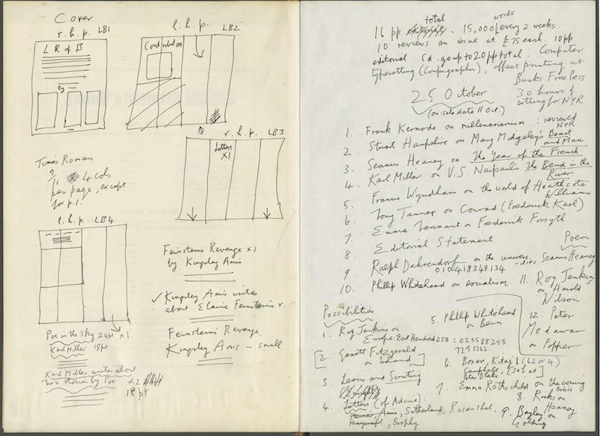 Cover
r.h.p. LB1
L R of B
By
l.h.p. LB2
Contributors
r.h.p. LB3
Letters
x1
Times Roman
9
11 4 cols
per page, except
for p.1.
l.h.p. LB4
Poe in the Sky 24pt x1
Karl Miller 18pt
Karl Miller writes about
two stories by Poe x2
18pt
Feinstein's Revenge x1
by Kingsley Amis
✓ Kingsley Amis writes
about Elaine Feinstein's
Feinstein's Revenge
Kingsley Amis – small
total words
16 pp 15,000 every 2 weeks.
10 reviews an issue at £75 each. 10pp
editorial. Ed. go up to 20pp total. Computer
typesetting (Compugraphic), offset printing at
Bucks Free Press
30 hours of
setting for NYR
25 October
(on sale date 11 Oct.)
1. Frank Kermode on millenarianism: reviewed NYR
2. Stuart Hampshire on Mary Midgeley's Beast and Man
3. Seamus Heaney on The Year of the French
4. Karl Miller on V.S. Naipaul's The Bend in the River
5. Francis Wyndham on the world of Heathcote Williams
6. Tony Tanner on Conrad (Frederick Karl)
7. Emma Tennant on Frederick Forsyth
8. Editorial Statement
9. Ralph Dahrendorf on the universe
10. Phillip Whitehead on socialism
Poem
Seamus Heaney
11. Roy Jenkins
on Harold
Nilson
12. Peter
Medawar
on Popper
Possibilities
1. Roy Jenkins on
Europe: East Hendred 258
2. Scott Fitzgerald
3. Learn and Scruting
4. Letters (of Advice)
Amis, Sutherland, Rosenthal,
Brophy
5. Phillip Whitehead
on Benn
6. Boxer, Kdag 1 (62 or 4)
7. Emma Rothschild on the coming crisis
8. Ricks on
Heaney
9. Bayley on
Golding